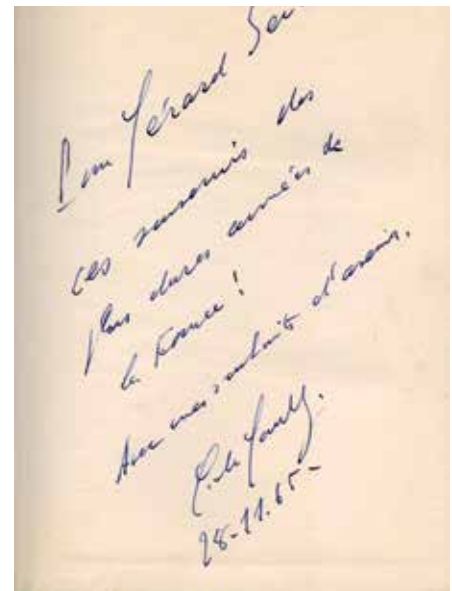 Pour Gérard
ces souvenirs des
plus dures années de
la France !
Avec mes souhaits d'avenir.
C. de Gaulle.
28-11.65-